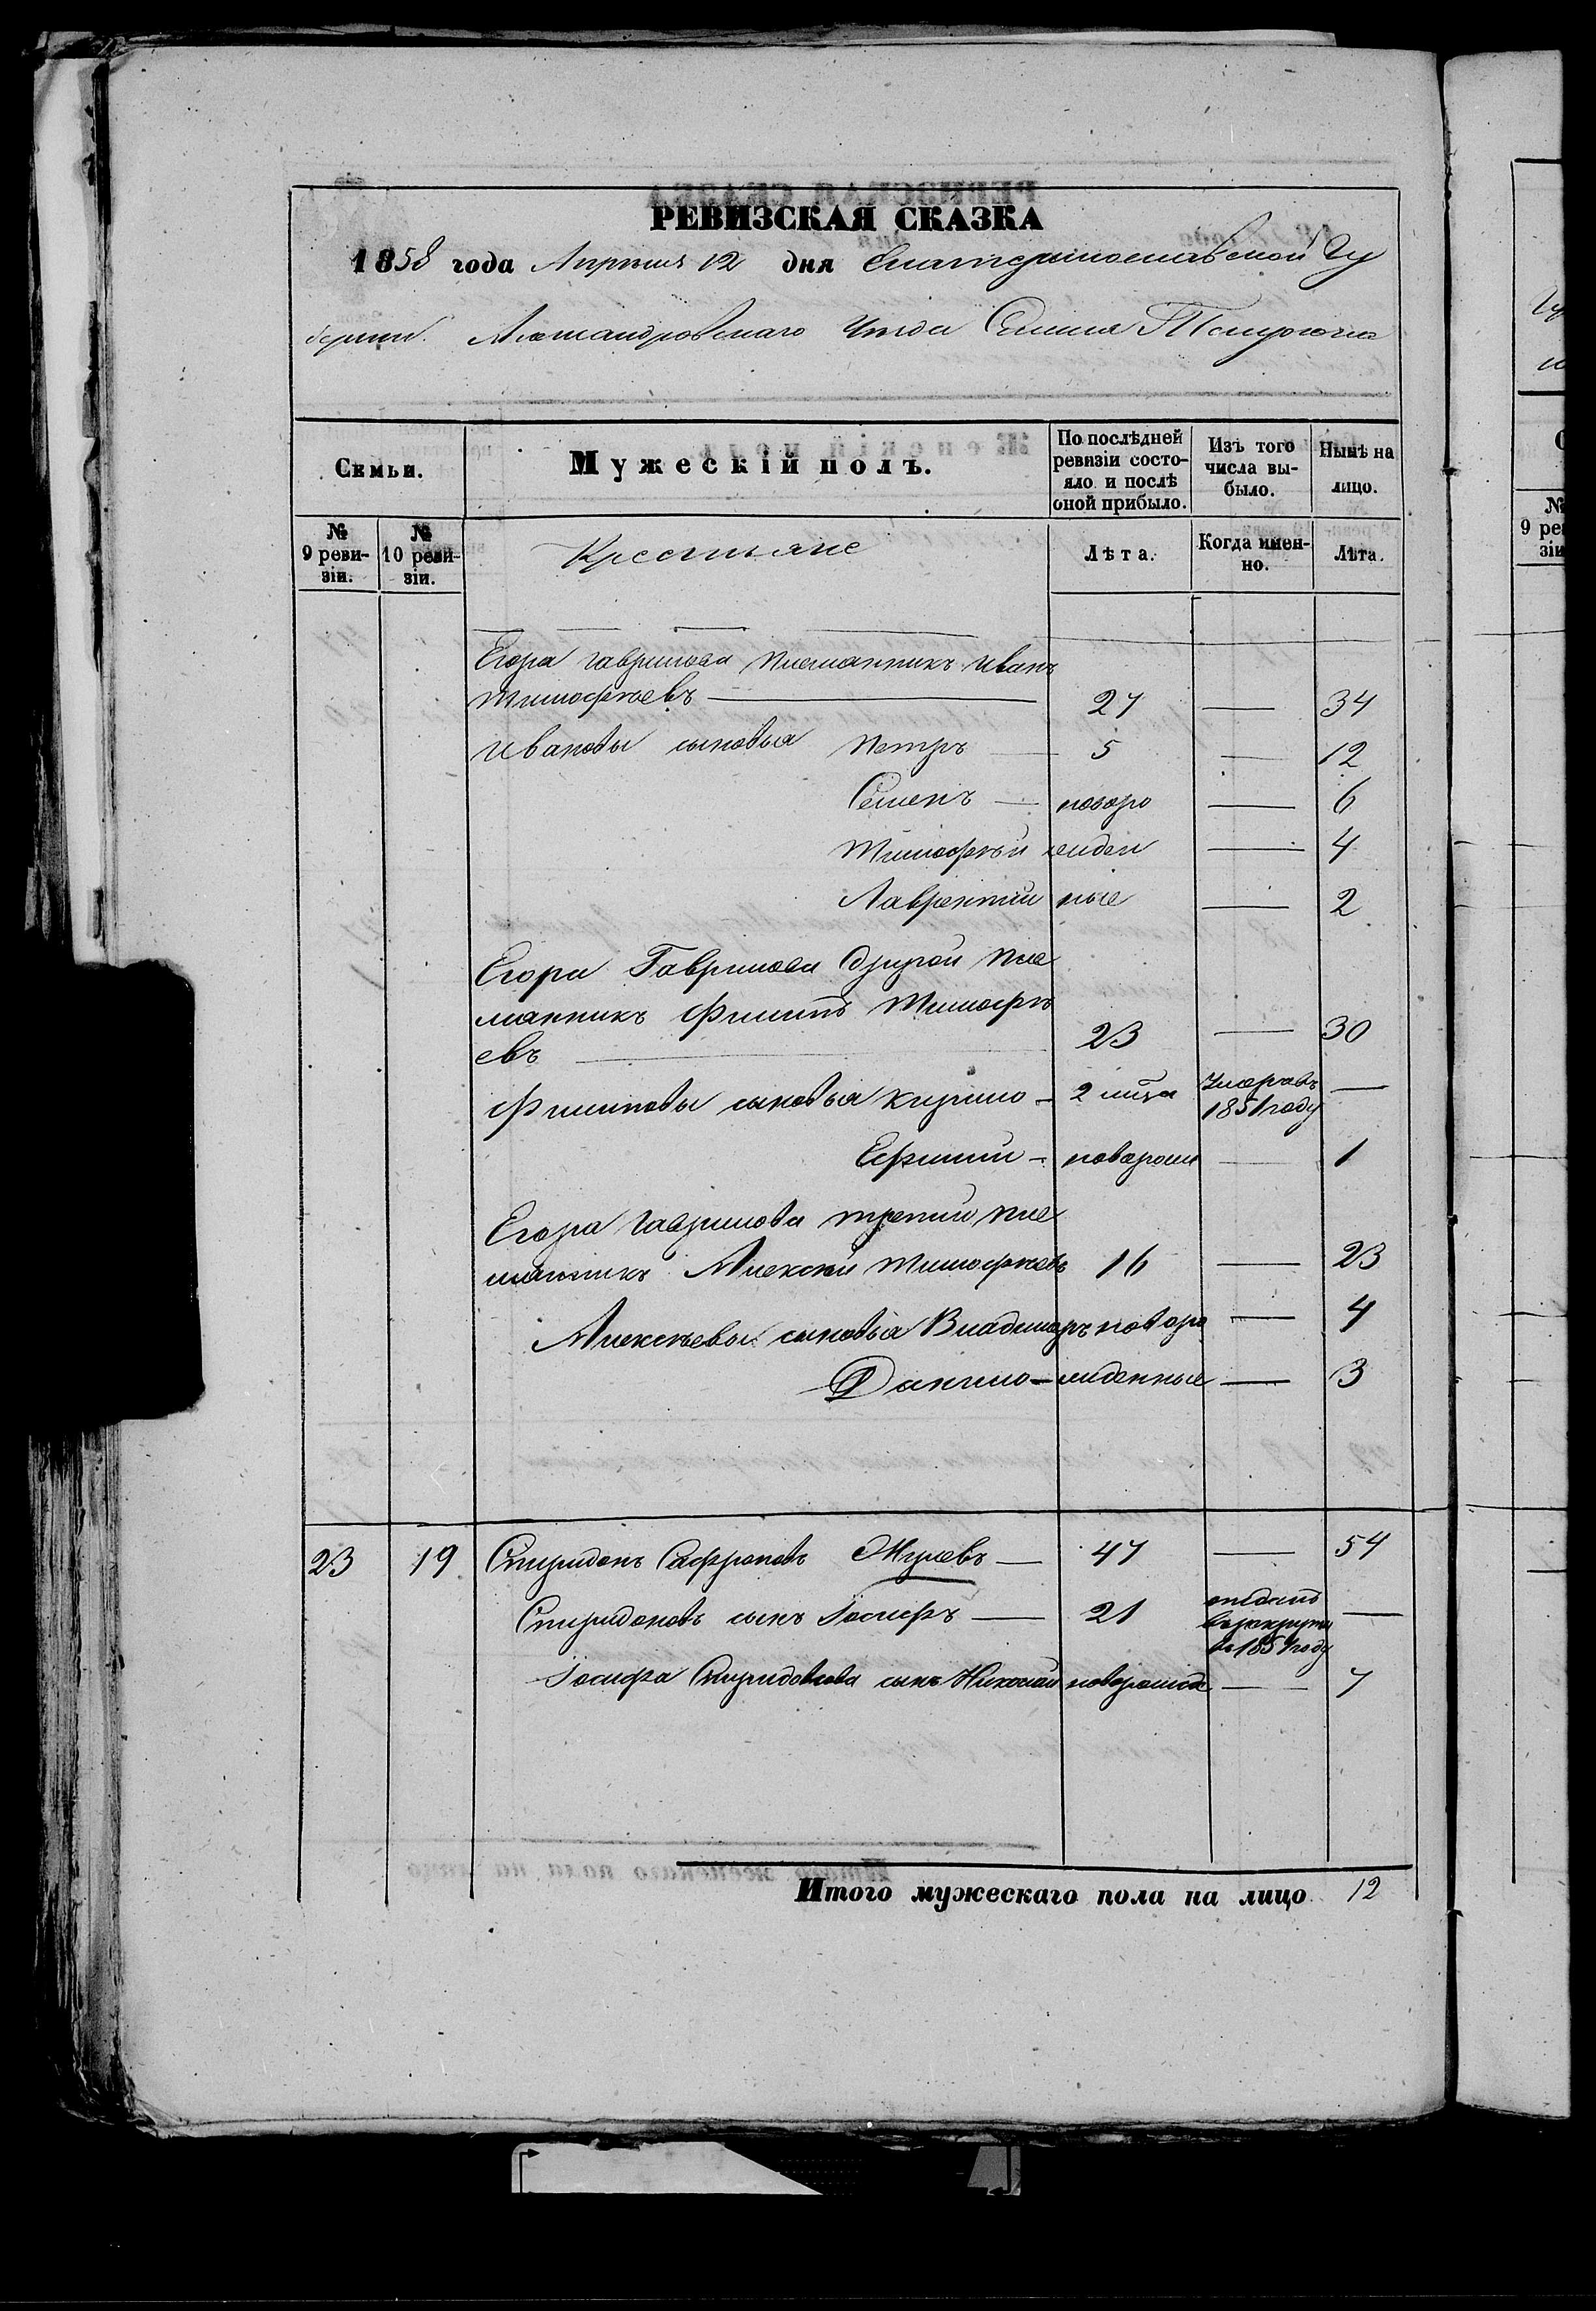 РЕВИЗСКАЯ СКАЗКА
1858 года Апрѣля 12 дня Екатеринославской Гу
берніи. Александровскаго Уѣзда Селенія
Семьи.
Мужескій полъ.
По послѣдней ревизіи состо-
яло и послѣ
оной прибыло.
Изъ того
числа вы-
было.
Нынѣ на
лицо.
№
9 реви-
зіи.
№
10 реви-
зіи.
Крестьяне
Лѣта.
Когда имен-
но.
Лѣта.
Егора Гаврилова племянникъ Иванъ
Тимофѣевъ — 27 — 34
Ивановы сыновья Петръ — 5 — 12
Семенъ — новоро — 6
Тимофѣй жиден — 4
Лаврентій ные — 2
Егора Гаврилова другой пле
мянникъ Филипъ Тимофѣ
евъ — 23 — 30
Филиповы сыновья Кирило - 2 Умеръ въ 1851 году —
Ефимій - новорожд — 1
Егора Гаврилова третій пле
мянникъ Алексѣй Тимофѣевъ 16 — 23
Алексѣевы сыновья Владимиръ новоро — 4
Данило - жиденные — 3
23 19 Спиридонъ Сафроновъ — 47 — 54
Спиридоновъ сынъ Іосифъ — 21 отданъ
въ рекруты
въ 1851 году —
Іосифа Спиридонова сынъ Николай новорожд — 7
Итого мужескаго пола на лицо 12
Гу
№
9 рев
зіи